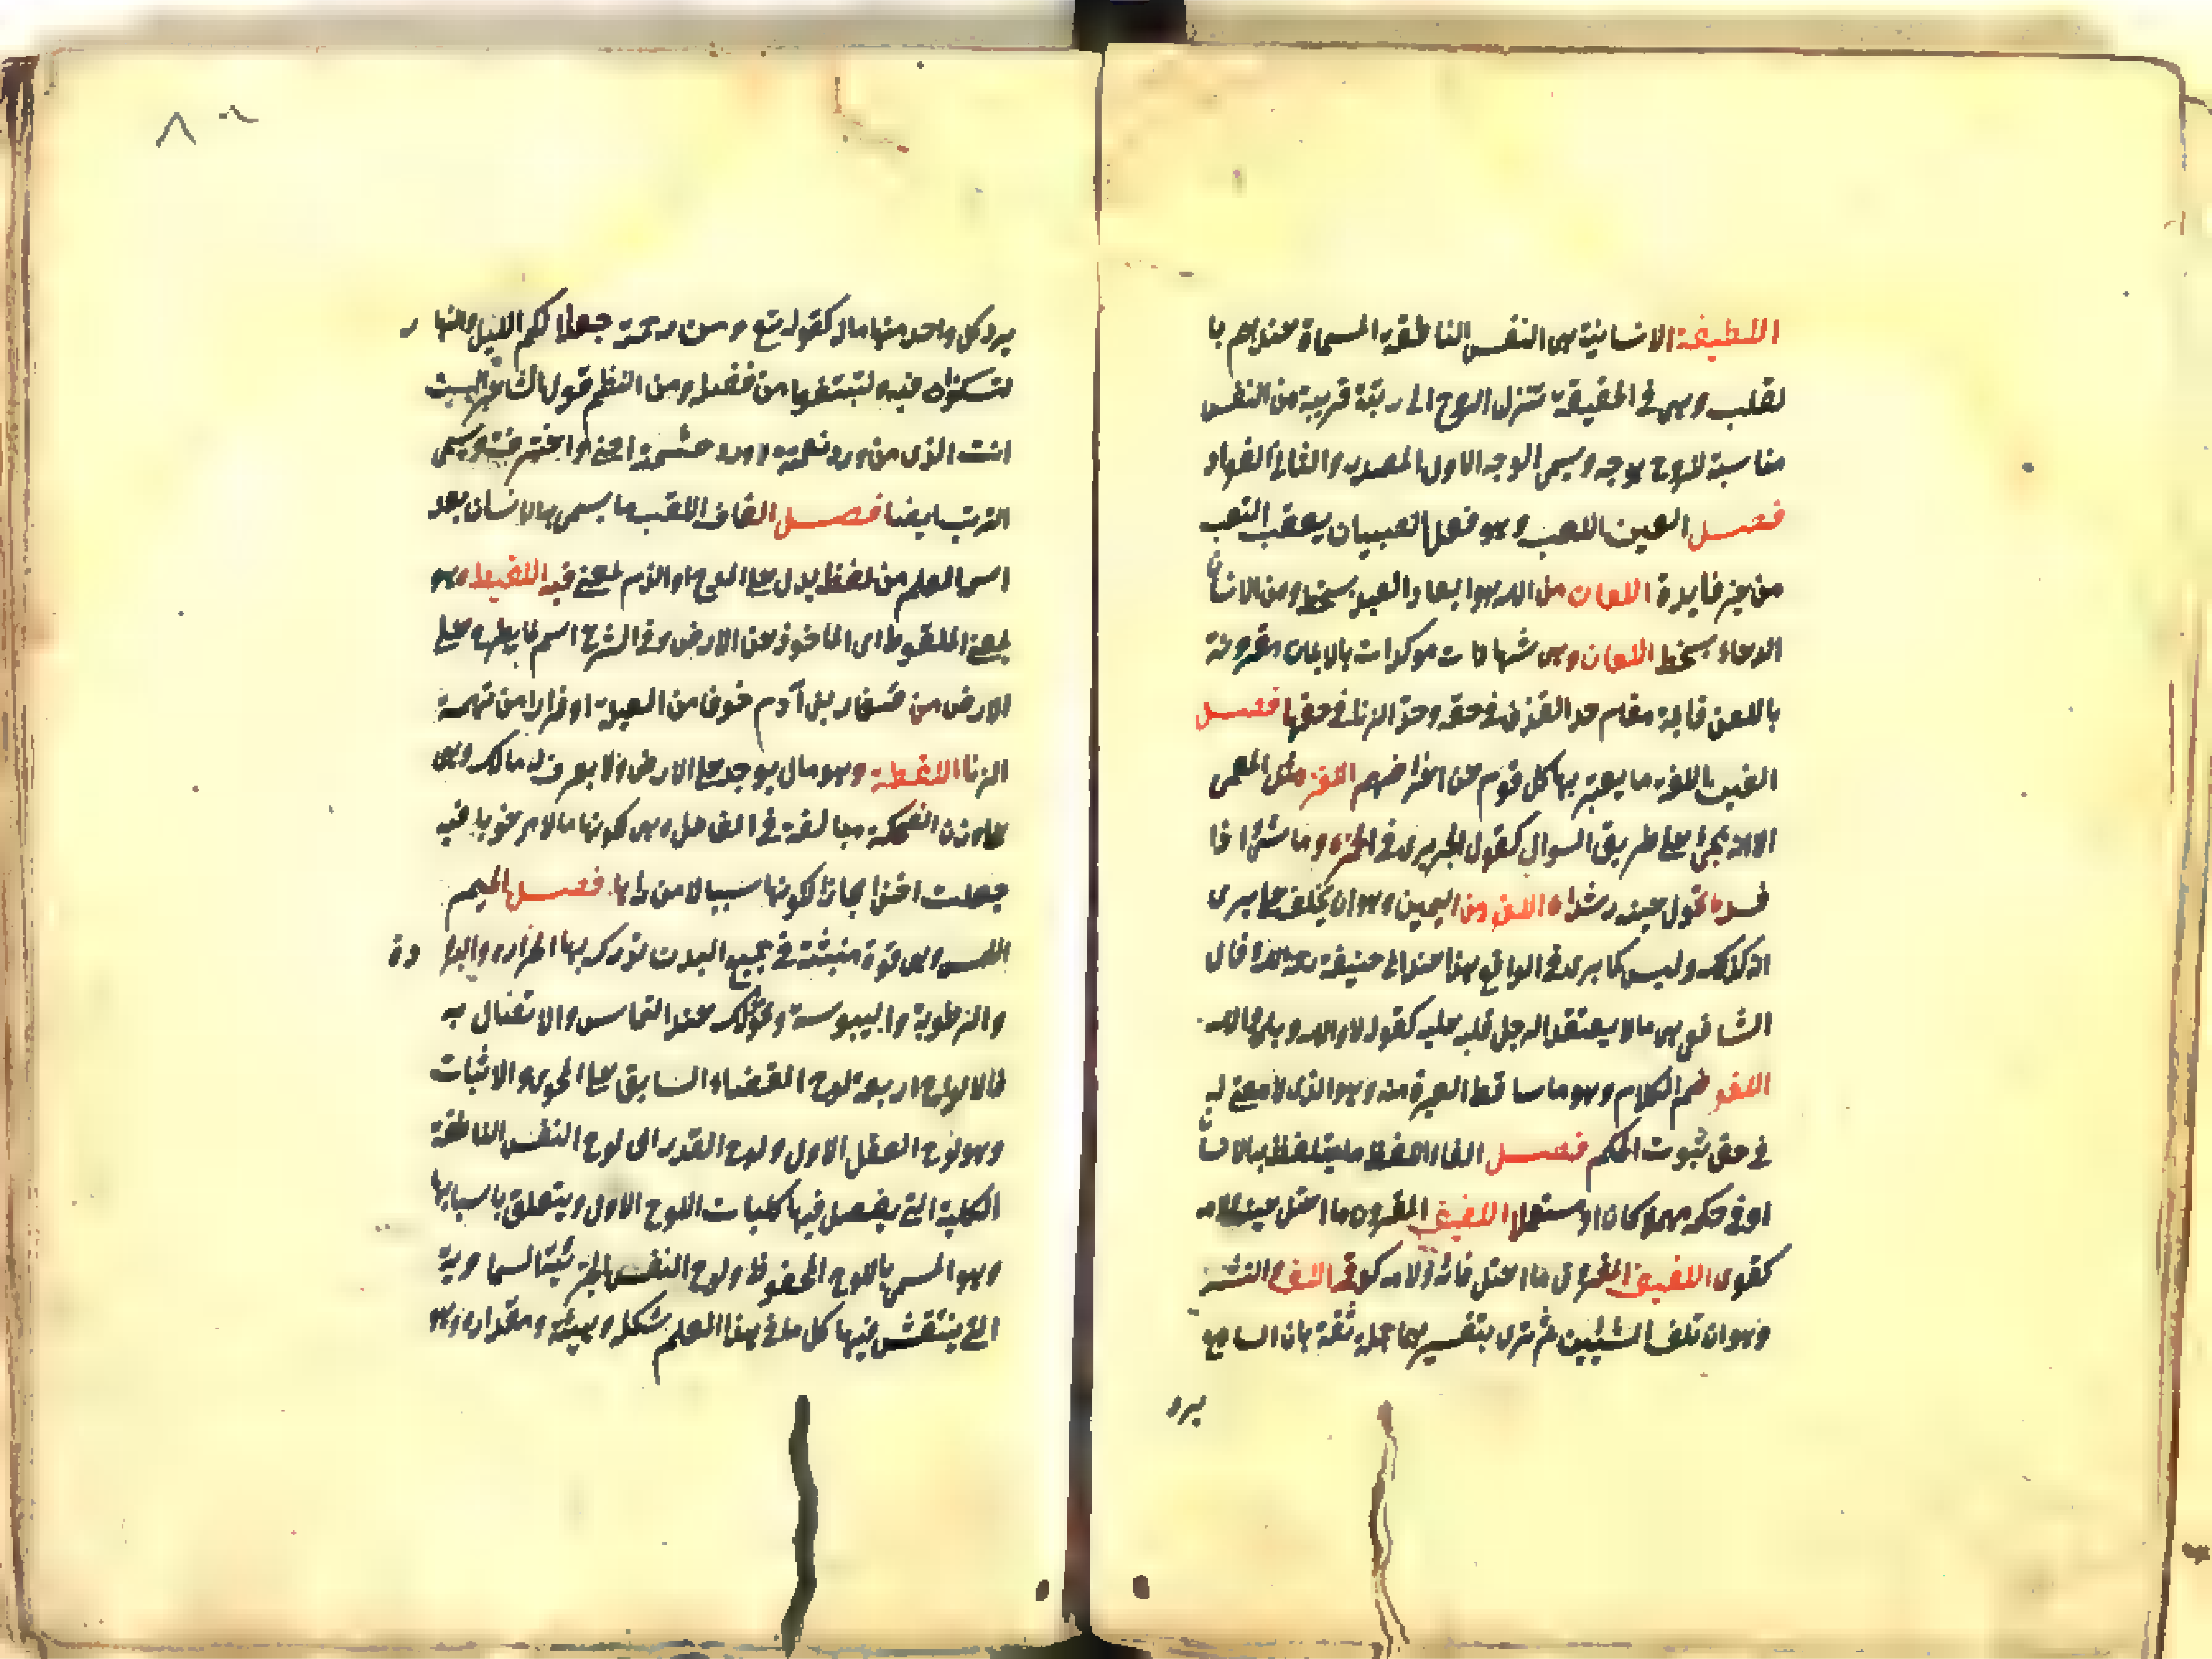 اللطيفة الانسانية هى النفس الناطقة المسماة عندهم با
لقلب وهى فى الحقيقة تنزل الروح الى رتبة قريبة من النفس
مناسبة للروح بوجه ويسمى الوجه الاول المصدر والثانى الفواد
فصل العين اللعب وهو فعل الصبيان يعقب التعب
من غير فايدة اللعان من الله هو ابعاد العبد بسخط ومن الانسان
الدعاء بسخط اللعان وهى شهادات موكدات بالايمان مقرونة
باللعن قايمة مقام حد القذف فى حقه وحد الزنا فى حقها فصل
الغين اللغة ما يعبر بها كل قوم عن اغراضهم اللغز مثل المعمى
الا انه يجئ على طريق السوال كقول الحريرى فى الخمر وما شئ اذا
فسدا تحول غيه رشدا اللغو من اليمين وهو ان يحلف على ما يرى
انه كذلك وليس كما يرى فى الواقع هذا عند ابى حنيفة رحمه الله قال
الشافعى هى ما لا يعتقد الرجل قلبه عليه كقوله لا والله وبلى والله
اللغو ضم الكلام وهو ما ساقط العبرة منه وهو الذى لا معنى له
فى حق ثبوت الحكم فصل الفاء اللفظ ما يتلفظ به الانسان
او فى حكمه مهملا كان او مستعملا اللفيف المقرون ما اعتل عينه ولامه
كقوى اللفيف المفروق ما اعتل فاؤه ولامه كوقى اللف والنشر
وهو ان تلف الشيئين ثم ترى بتفسيرهما جملة ثقة بان السامع
يرد
يرد كل واحد منهما ماله كقوله تع ومن رحمته جعل لكم الليل والنهار
لتسكنوا فيه ولتبتغوا من فضله ومن النظم قول الشاعر البيت
الست الذى من ورد نعمته اورد حشمته اجنى واغترف ويسمى
الترتيب ايضا فصل القاف اللقب ما يسمى به الانسان بعد
اسم العلم من لفظ يدل على المدح او الذم لمعنى فيه اللقيط وهو
بمعنى الملقوط اى الماخوذ من الارض وفى الشرح اسم لما يطرح على
الارض من صغار بنى آدم خوفا من العيلة او فرارا من تهمة
الزنا اللقطة وهو مال يوجد على الارض ولا يعرف له مالك وهى
على وزن الضحكة مبالغة فى الفاعل وهى لكونها مالا مرغوبا فيه
جعلت اخذا مجازا لكونها سببا لا من راها فصل الميم
اللمس وهى قوة منبثة فى جميع البدن تدرك بها الحرارة والبرودة
والرطوبة واليبوسة ونحو ذلك عند التماس والاتصال به
فالالواح اربعة لوح القضاء السابق على المحو والاثبات
وهو لوح العقل الاول ولوح القدر اى لوح النفس الناطقة
الكلية التى يفصل فيها كليات اللوح الاول ويتعلق باسبابها
وهو المسمى باللوح المحفوظ ولوح النفس الجزئية السماوية
التى ينتقش فيها كل ما فى هذا العلم شكله وهيئته ومقداره وهو